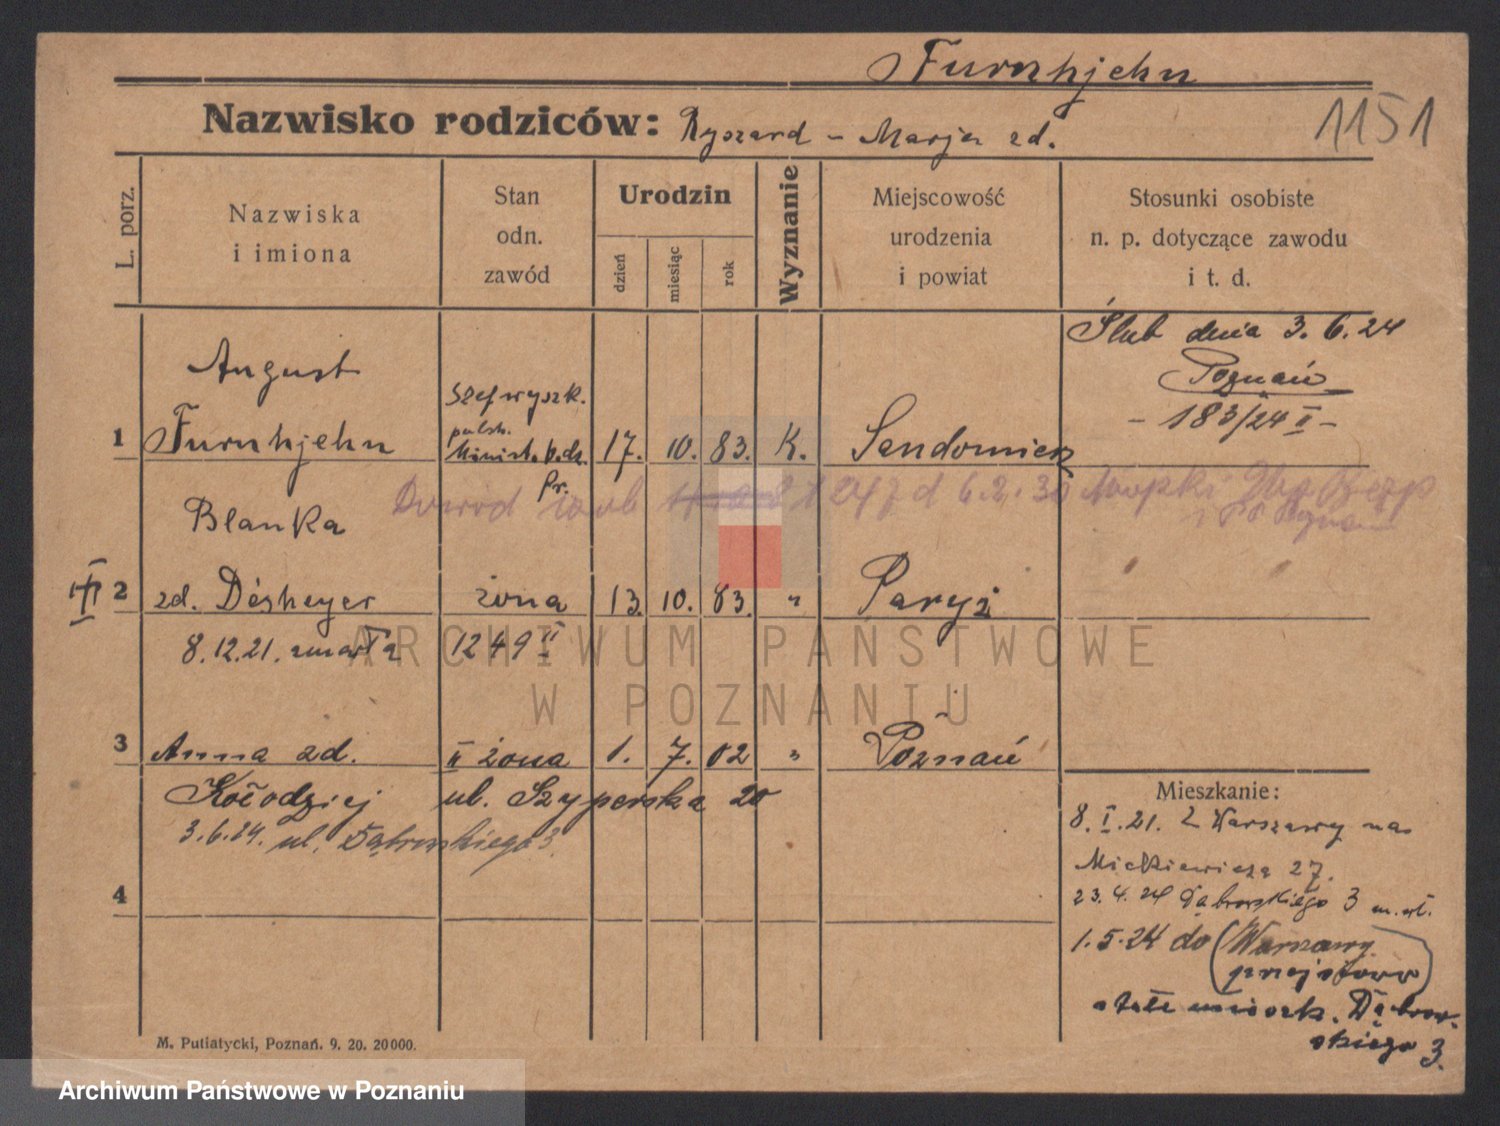 Furnhjehn
1151
Nazwisko rodziców: Ryszard - Marja zd.
L. porz.
Nazwiska
i imiona
Stan
odn.
zawód
Urodzin
dzień
miesiąc
rok
Wyznanie
Miejscowość
urodzenia
i powiat
Stosunki osobiste
n. p. dotyczące zawodu
i t. d.
Ślub dnia 3. 6. 24
Poznań
- 183/24 II -
August
Szef wyszk.
1 Furnhjehn 17. 10. 83. K. Sandomierz
Pr.
Dowód 1247 d 6.2.30
Blanka
2 zd. Désheyer żona 13. 10. 83. " Paryż
8. 12. 21. zmarła 1249 II
3 Anna zd. II żona 1. 7. 02 " Poznań
Kołodziej ul. Szyperska 20
3. 6. 24. ul. Dąbrowskiego 3.
4
Mieszkanie:
8. I. 21. Z Warszawy na
Mickiewicza 27.
23. 4. 24 Dąbrowskiego 3
1. 5. 24 do Warszawy
stałe Dąbrow-
skiego 3.
M. Putiatycki, Poznań. 9. 20. 20000.
ARCHIWUM PAŃSTWOWE
W POZNANIU
Archiwum Państwowe w Poznaniu